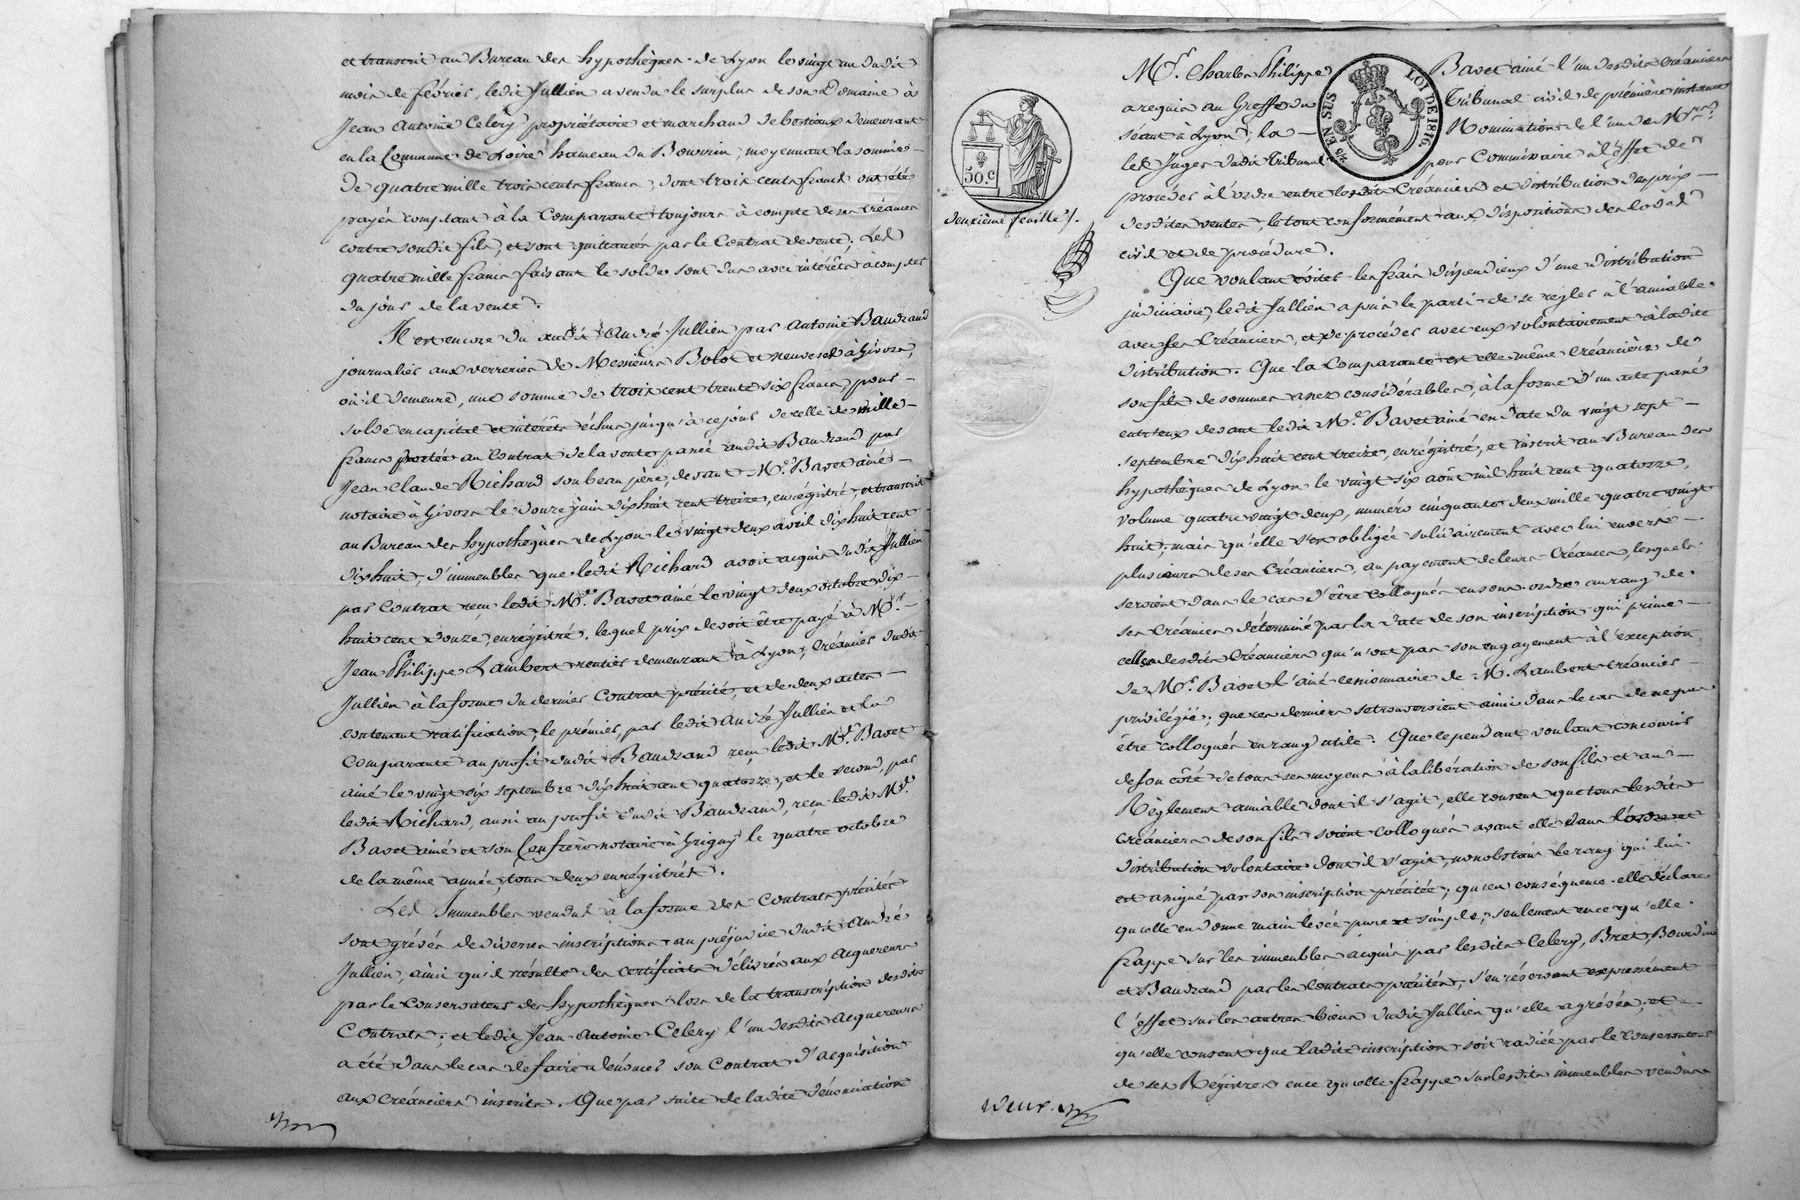 et transcrit au Bureau des hypothèques de Lyon le vingt un dudit
mois de février, ledit Jullien a vendu le surplus de son Domaine à
Jean Antoine Celery propriétaire et marchand de bestiaux demeurant
en la Commune de Loire hameau du Bourrin, moyennant la somme
de quatre mille trois cents francs, dont trois cents francs ont été
payés comptant à la Comparante toujours à compte de ses créances
contre sondit fils, et sont quittancés par le Contrat de vente; Les
quatre mille francs faisant le solde sont dus avec intérêts à compter
du jour de la vente.
Il est encore du audit André Jullien par Antoine Baudrand
journalier aux verreries de Messieurs Bolot et neuvesel à Givors,
où il demeure, une somme de trois cent trente six francs, pour
solde en capital et intérêts échus jusqu'à ce jour de celle de mille
francs portée au Contrat de la vente passée audit Baudrand par
Jean Claude Richard son beau père, devant Me. Bavet ainé
notaire à Givors le douze juin dix huit cent treize, enregistré, et transcrit
au Bureau des hypothèques de Lyon le vingt deux avril dix huit cent
dix huit, d'immeubles que ledit Richard avoit acquis dudit Jullien
par Contrat reçu ledit Me. Bavet ainé le vingt deux octobre dix
huit cent douze, enregistré. lequel prix devoit être payé à Mr.
Jean Philippe Lambert rentier demeurant à Lyon, Créancier dudit
Jullien à la forme du dernier Contrat précité, et de deux actes
contenant ratification, le premier, par ledit André Jullien et la
Comparante au profit dudit Baudrand, reçu ledit Me. Bavet
ainé le vingt six septembre dix huit cent quatorze, et le second, par
ledit Richard, aussi au profit dudit Baudrand, reçu ledit Me.
Bavet ainé et son Confrère notaire à Grigny le quatre octobre
de la même année, tous deux enregistrés.
Les Immeubles vendus à la forme des Contrats précités
sont grévés de diverses inscriptions au préjudice dudit André
Jullien, ainsi qu'il résulte des certificats délivrés aux acquereurs
par le Conservateur des hypothèques lors de la transcription desdits
Contrats; et ledit Jean Antoine Celery l'un desdits acquereurs
a été dans le cas de faire dénoncer son Contrat d'acquisition
aux Créanciers inscrits. Que par suite de ladite dénonciation
50.c
deuxième feuille /.
EN SUS LOI DE 1816
Me. Charles Philippe Bavet ainé l'un desdits créanciers
a requis au Greffe du Tribunal civil de première instance
séant à Lyon, la Nomination de l'un de Mrs.
les Juges dudit Tribunal pour Commissaire à l'effet de
procéder à l'ordre entre lesdits Créanciers et distribution du prix
desdites ventes, le tout conformément aux dispositions des Codes
civil et de procédure.
Que voulant éviter les frais dispendieux d'une distribution
judiciaire, ledit Jullien a pris le parti de se régler à l'amiable
avec ses Créanciers, et de procéder avec eux volontairement à ladite
distribution. Que la Comparante est elle même Créancière de
son fils de sommes assez considérables, à la forme d'un acte passé
entr'eux devant ledit Me. Bavet ainé en date du vingt sept
septembre dix huit cent treize, enregistré, et inscrit au Bureau des
hypothèques de Lyon le vingt six août mil huit cent quatorze,
volume quatre vingt deux, numéro cinquante deux mille quatre vingt
huit; mais qu'elle s'est obligée solidairement avec lui envers
plusieurs de ses Créanciers, au payement de leurs Créances, lesquels
seroient dans le cas d'être colloqués en sous ordre au rang de
ses Créances déterminé par la date de son inscription qui prime
celles desdits Créanciers qui n'ont pas son engagement à l'exception
de Me. Bavet l'ainé cessionnaire de M. Lambert Créancier
privilégié; que ces derniers se trouveroient ainsi dans le cas de ne pas
être colloqués en rang utile. Que cependant voulant concourir
de son côté de tous ses moyens à la libération de son fils et au
Règlement amiable dont il s'agit, elle consent que tous lesdits
Créanciers de son fils soient colloqués avant elle dans l'ordre et
distribution volontaire dont il s'agit, nonobstant le rang qui lui
est assigné par son inscription précitée; qu'en conséquence elle déclare
qu'elle en donne main levée pure et simple, seulement en ce qu'elle
frappe sur les immeubles acquis par lesdits Celery, Bret, Bourdin
et Baudrand par les Contrats précités, s'en réservant expressément
l'effet sur les autres biens dudit Jullien qu'elle a grévés, et
qu'elle consent que ladite inscription soit radiée par le Conservateur
de ses Régistres en ce qu'elle frappe sur lesdits immeubles vendus